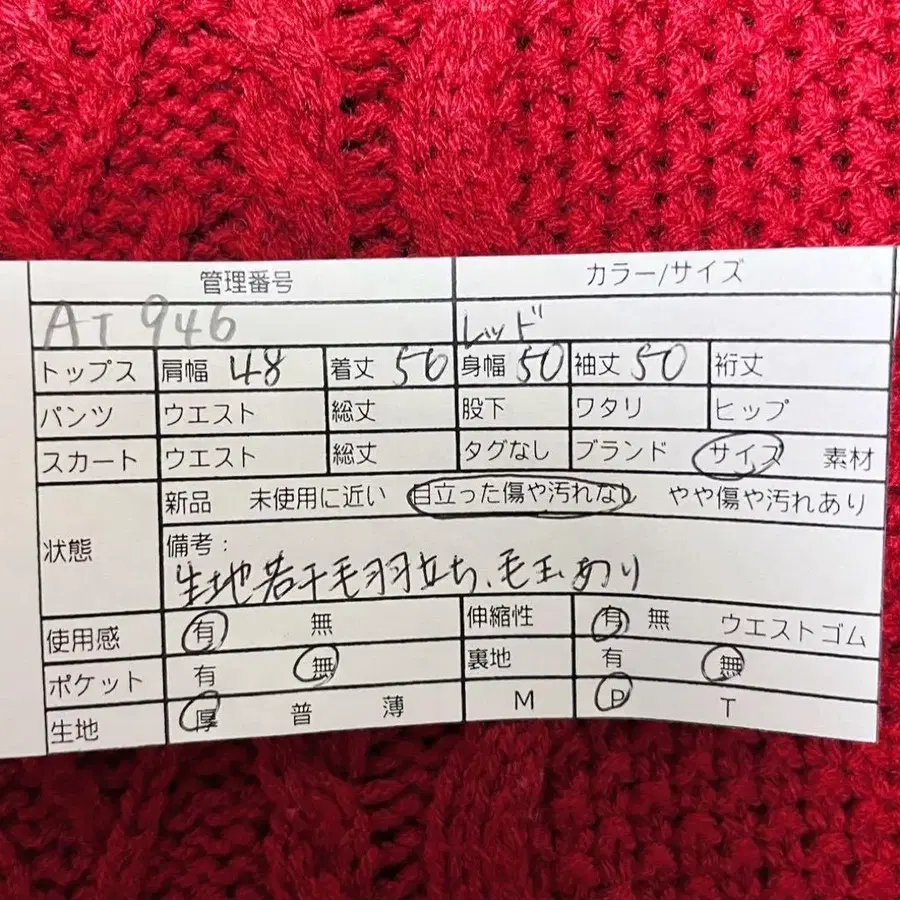 管理番号 カラー/サイズ
AT 946 レッド
トップス 肩幅 48 着丈 50 身幅 50 袖丈 50 裄丈
パンツ ウエスト 総丈 股下 ワタリ ヒップ
スカート ウエスト 総丈 タグなし ブランド サイズ 素材
状態 新品 未使用に近い 目立った傷や汚れなし やや傷や汚れあり
備考：
生地若干毛羽立ち、毛玉あり
使用感 有 無 伸縮性 有 無 ウエストゴム
ポケット 有 無 裏地 有 無
生地 厚 普 薄 M P T